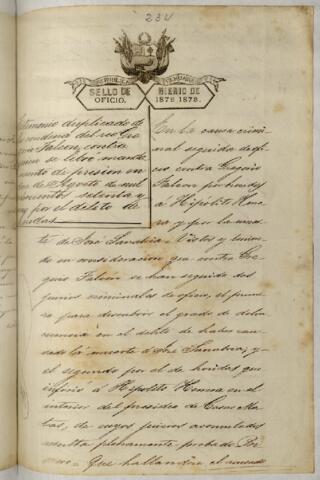 234
SELLO DE OFICIO.
BIENIO DE 1878 1879.
Testimonio duplicado de
condena del reo Gre
Falcon, contra
quien se libró manda
miento de prision en
de Agosto de mil
ochocientos setenta y
por el delito de
heridas
En la causa crimi
nal seguida de ofi
cio contra Gregorio
Falcon por heridas
á Hipólito Hono
ra y por la muer
te de José Sanabria. Vistos y tenien
do en consideracion que contra Gre
gorio Falcon se han seguido dos
juicios criminales de oficio, el prime
ro para descubrir el grado de delin
cuencia en el delito de haber cau
sado la muerte á José Sanabria, y
el segundo por el de heridas que
infirió á Hipólito Honora en el
interior del presidio de Casas Ma
tas, de cuyos juicios acumulados
resulta plenamente probado Pri
mero Que hallandose el acusado